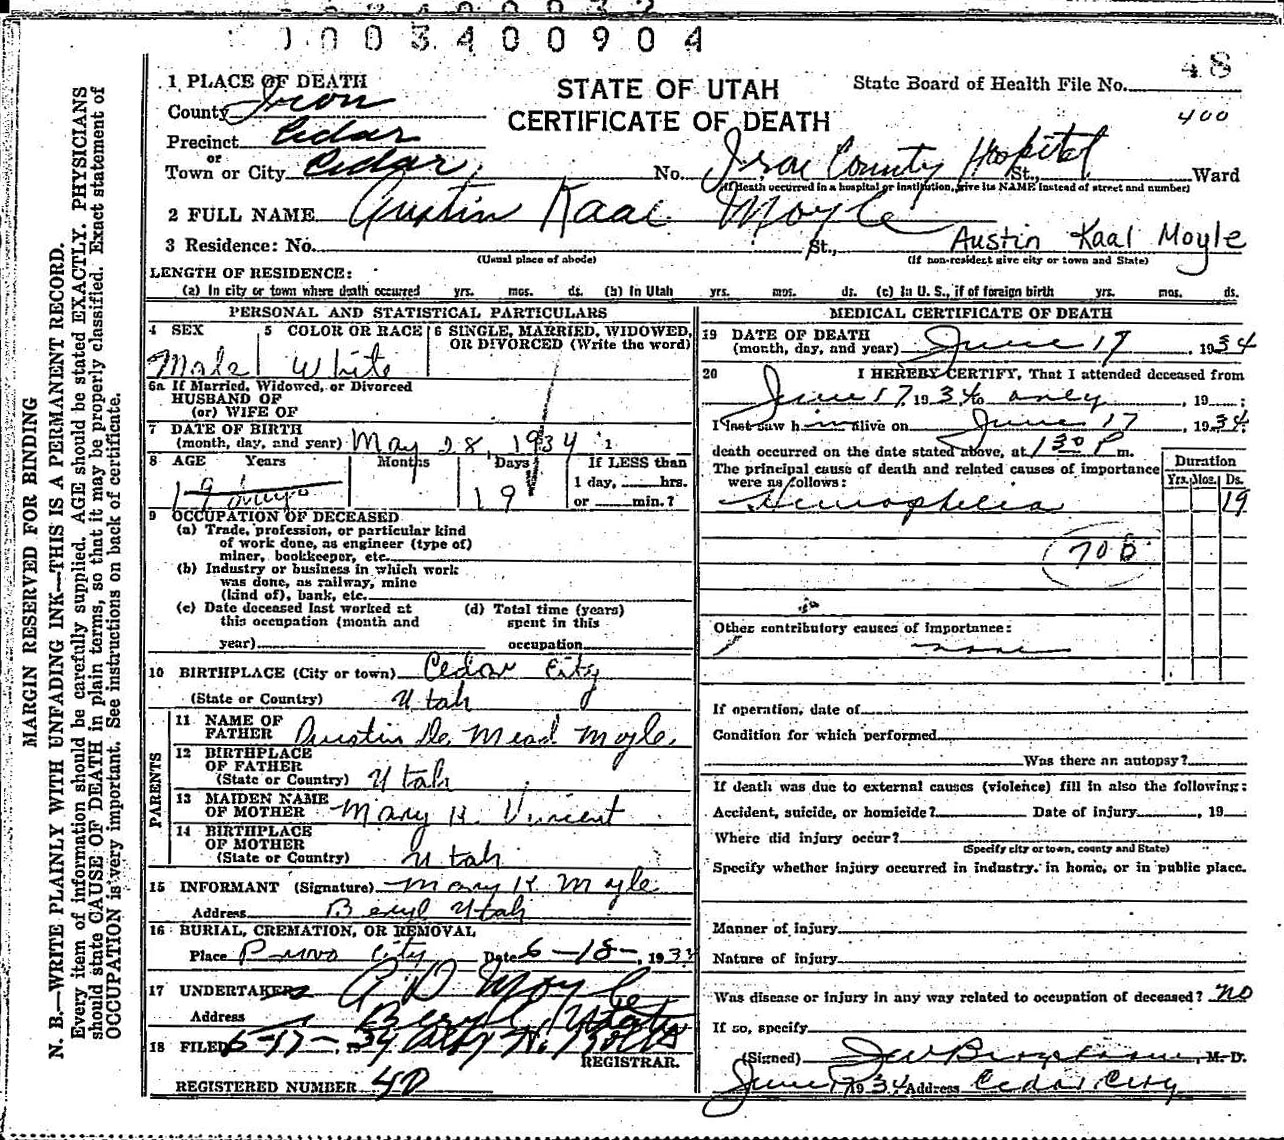 1003400904
48
400
STATE OF UTAH
CERTIFICATE OF DEATH
State Board of Health File No.
MARGIN RESERVED FOR BINDING
N. B.—WRITE PLAINLY WITH UNFADING INK—THIS IS A PERMANENT RECORD.
Every item of information should be carefully supplied. AGE should be stated EXACTLY. PHYSICIANS
should state CAUSE OF DEATH in plain terms, so that it may be properly classified. Exact statement of
OCCUPATION is very important. See instructions on back of certificate.
1 PLACE OF DEATH
County Iron
Precinct Cedar
or
Town or City Cedar, No. Iron County Hospital St., Ward
(If death occurred in a hospital or institution, give its NAME instead of street and number)
2 FULL NAME Austin Kaal Moyle
3 Residence: No. St., Austin Kaal Moyle
(Usual place of abode) (If non-resident give city or town and State)
LENGTH OF RESIDENCE:
(a) In city or town where death occurred yrs. mos. ds. (b) In Utah yrs. mos. ds. (c) In U. S., if of foreign birth yrs. mos. ds.
PERSONAL AND STATISTICAL PARTICULARS
4 SEX 5 COLOR OR RACE 6 SINGLE, MARRIED, WIDOWED,
OR DIVORCED (Write the word)
Male White
6a If Married, Widowed, or Divorced
HUSBAND OF
(or) WIFE OF
7 DATE OF BIRTH
(month, day, and year) May 28, 1934
8 AGE Years Months Days If LESS than
1 day, hrs.
or min.?
19 days 19
9 OCCUPATION OF DECEASED
(a) Trade, profession, or particular kind
of work done, as engineer (type of)
miner, bookkeeper, etc.
(b) Industry or business in which work
was done, as railway, mine
(kind of), bank, etc.
(c) Date deceased last worked at (d) Total time (years)
this occupation (month and spent in this
year) occupation
10 BIRTHPLACE (City or town) Cedar City
(State or Country) Utah
PARENTS
11 NAME OF
FATHER Austin De Mead Moyle
12 BIRTHPLACE
OF FATHER
(State or Country) Utah
13 MAIDEN NAME
OF MOTHER Mary K. Vincent
14 BIRTHPLACE
OF MOTHER
(State or Country) Utah
15 INFORMANT (Signature) Mary K Moyle
Address Beryl Utah
16 BURIAL, CREMATION, OR REMOVAL
Place Provo City Date 6-18-, 1934
17 UNDERTAKER A D Moyle
Address Beryl, Utah
18 FILED 6-17-, 1934
REGISTRAR.
REGISTERED NUMBER 40
MEDICAL CERTIFICATE OF DEATH
19 DATE OF DEATH
(month, day, and year) June 17, 1934
20 I HEREBY CERTIFY, That I attended deceased from
June 17 1934 to only, 19 ;
I last saw him alive on June 17, 1934
death occurred on the date stated above, at 1 30 P m.
The principal cause of death and related causes of importance
were as follows:
Duration
Yrs. Mos. Ds.
Hemophelia 19
70 B
Other contributory causes of importance:
none
If operation, date of
Condition for which performed
Was there an autopsy?
If death was due to external causes (violence) fill in also the following:
Accident, suicide, or homicide? Date of injury , 19
Where did injury occur?
(Specify city or town, county and State)
Specify whether injury occurred in industry, in home, or in public place.
Manner of injury
Nature of injury
Was disease or injury in any way related to occupation of deceased? no
If so, specify
(Signed) , M. D.
June 17 1934 Address Cedar City